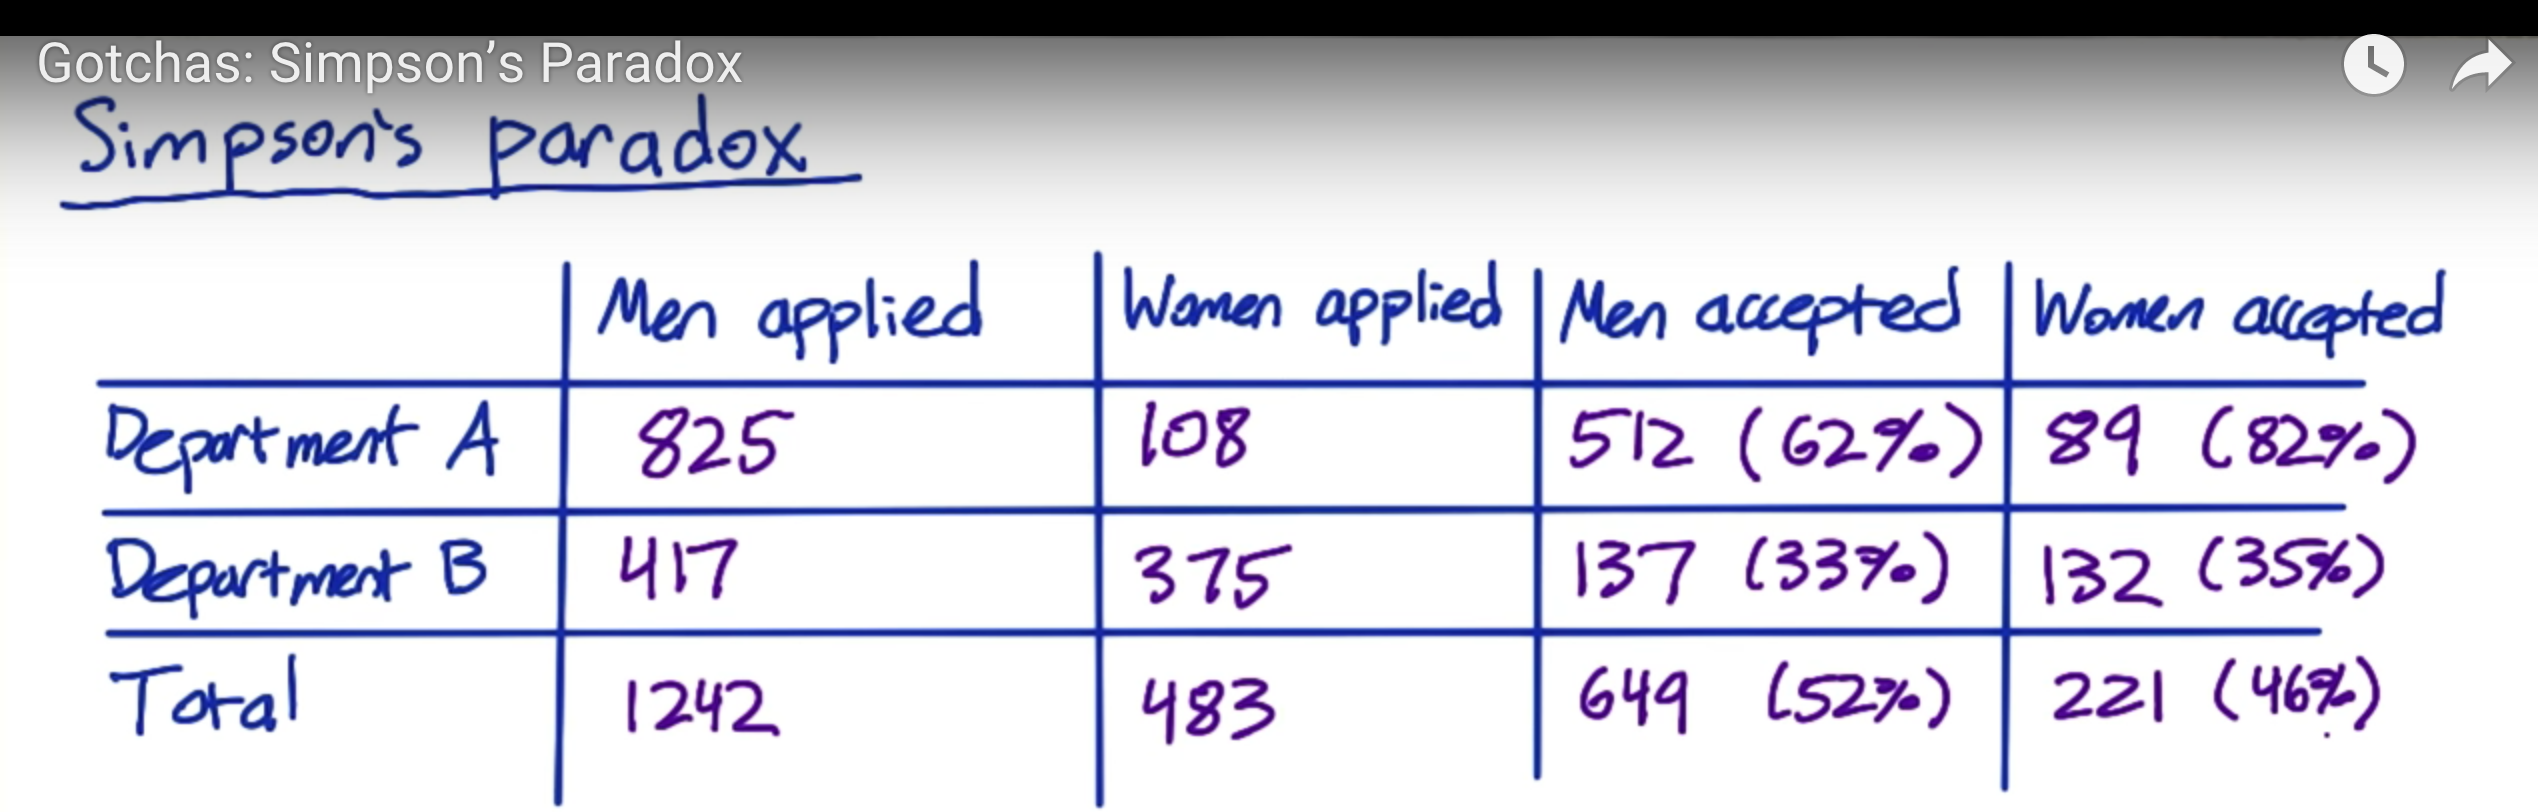 Gotchas: Simpson’s Paradox
Simpson's paradox
Men applied Women applied Men accepted Women accepted
Department A 825 108 512 (62%) 89 (82%)
Department B 417 375 137 (33%) 132 (35%)
Total 1242 483 649 (52%) 221 (46%)